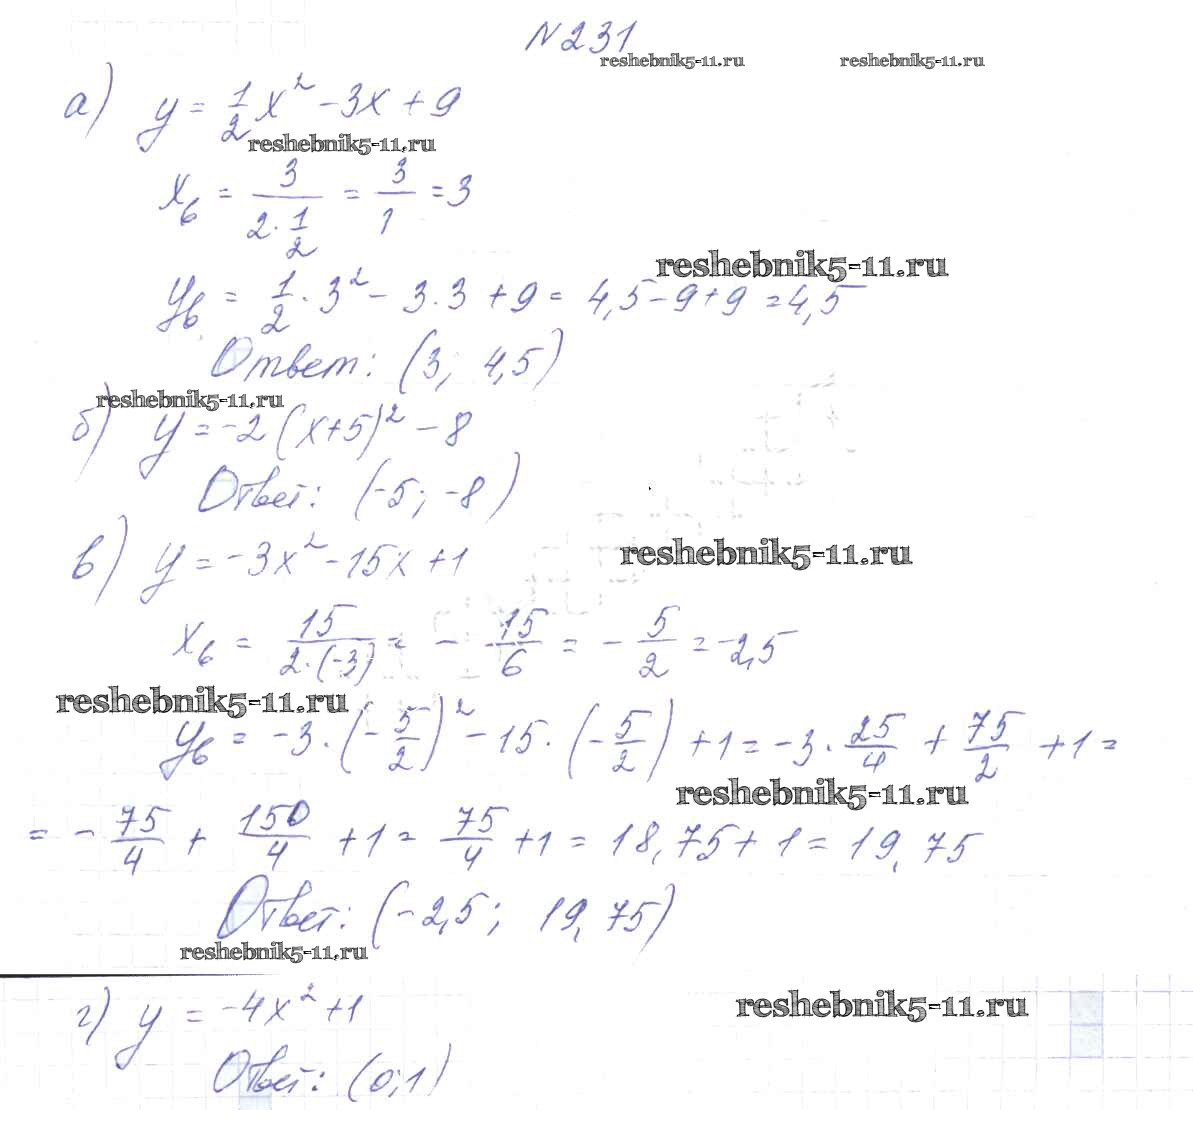 №231
reshebnik5-11.ru reshebnik5-11.ru
а) y = 1/2 x² - 3x + 9
reshebnik5-11.ru
xв = 3/(2·1/2) = 3/1 = 3
reshebnik5-11.ru
yв = 1/2 · 3² - 3·3 + 9 = 4,5 - 9 + 9 = 4,5
Ответ: (3; 4,5)
reshebnik5-11.ru
б) y = -2(x+5)² - 8
Ответ: (-5; -8)
в) y = -3x² - 15x + 1
reshebnik5-11.ru
xв = 15/(2·(-3)) = - 15/6 = - 5/2 = -2,5
reshebnik5-11.ru
yв = -3·(-5/2)² - 15·(-5/2) + 1 = -3· 25/4 + 75/2 + 1 =
reshebnik5-11.ru
= - 75/4 + 150/4 + 1 = 75/4 + 1 = 18,75 + 1 = 19,75
Ответ: (-2,5; 19,75)
reshebnik5-11.ru
г) y = -4x² + 1
reshebnik5-11.ru
Ответ: (0;1)